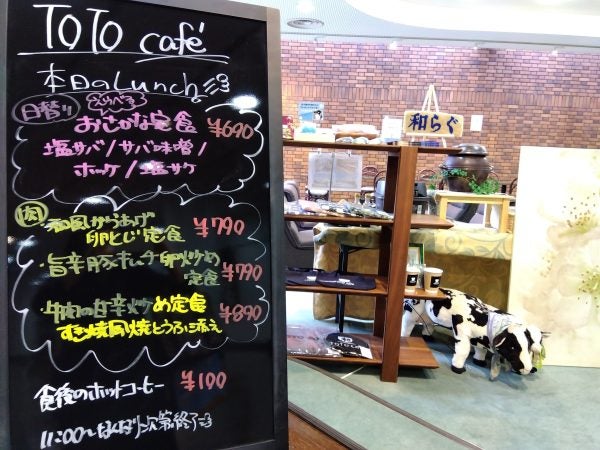 TOTO café
本日のLunch
日替り えらべる
おさかな定食 ¥690
塩サバ/サバ味噌/
ホッケ/塩サケ
肉 ・和風からあげ
卵とじ定食 ¥790
・旨辛豚キムチ卵炒め
定食 ¥790
・牛肉の甘辛炒め定食 ¥890
すき焼風焼とうふ添え
食後のホットコーヒー ¥100
11:00〜 次第終了
和らぐ
TOTO CAFE